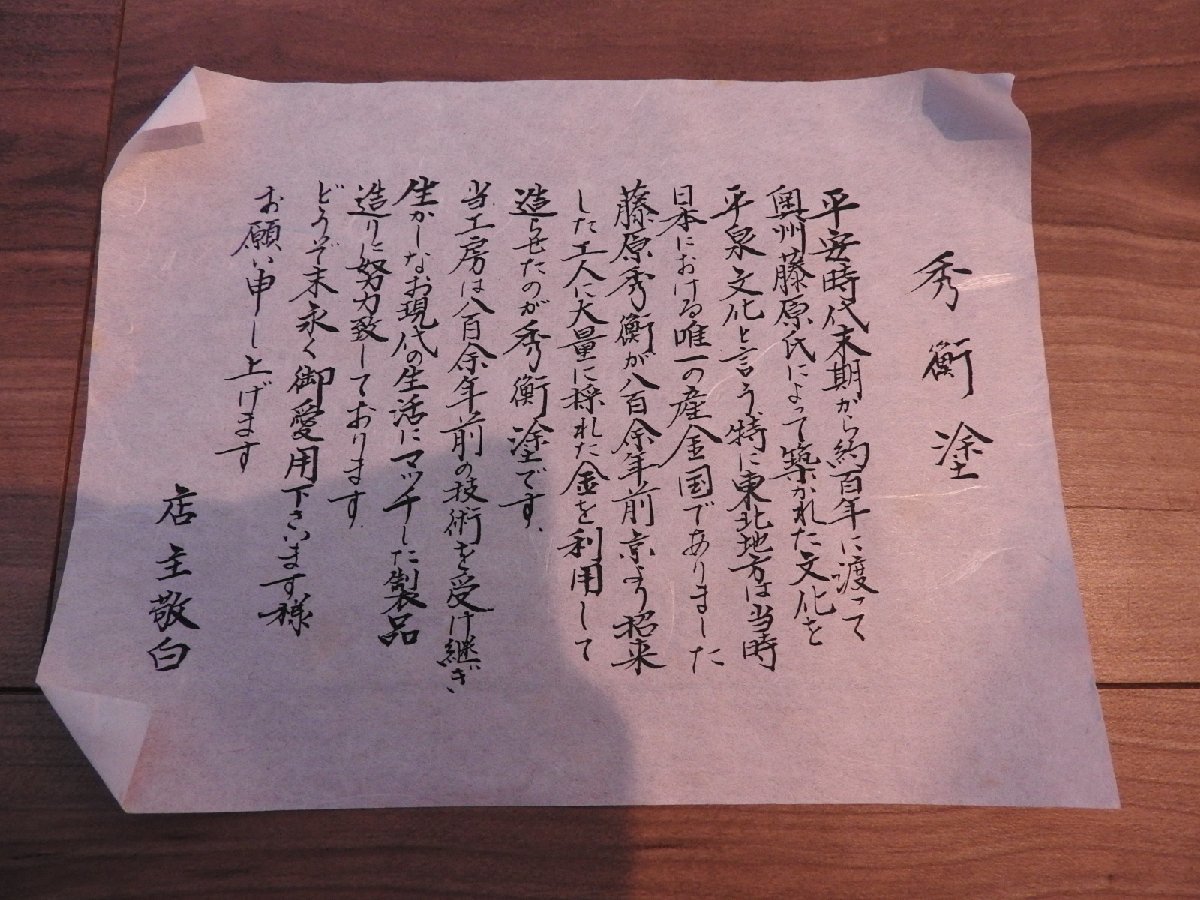 秀衡塗
平安時代末期から約百年に渡って
奥州藤原氏によって築かれた文化を
平泉文化と言う、特に東北地方は当時
日本における唯一の産金国でありました
藤原秀衡が八百余年前京より招来
した工人に大量に採れた金を利用して
造らせたのが秀衡塗です、
当工房は八百余年前の技術を受け継ぎ
生かしなお現代の生活にマッチした製品
造りに努力致しております
どうぞ末永く御愛用下さいます様
お願い申し上げます
店主敬白